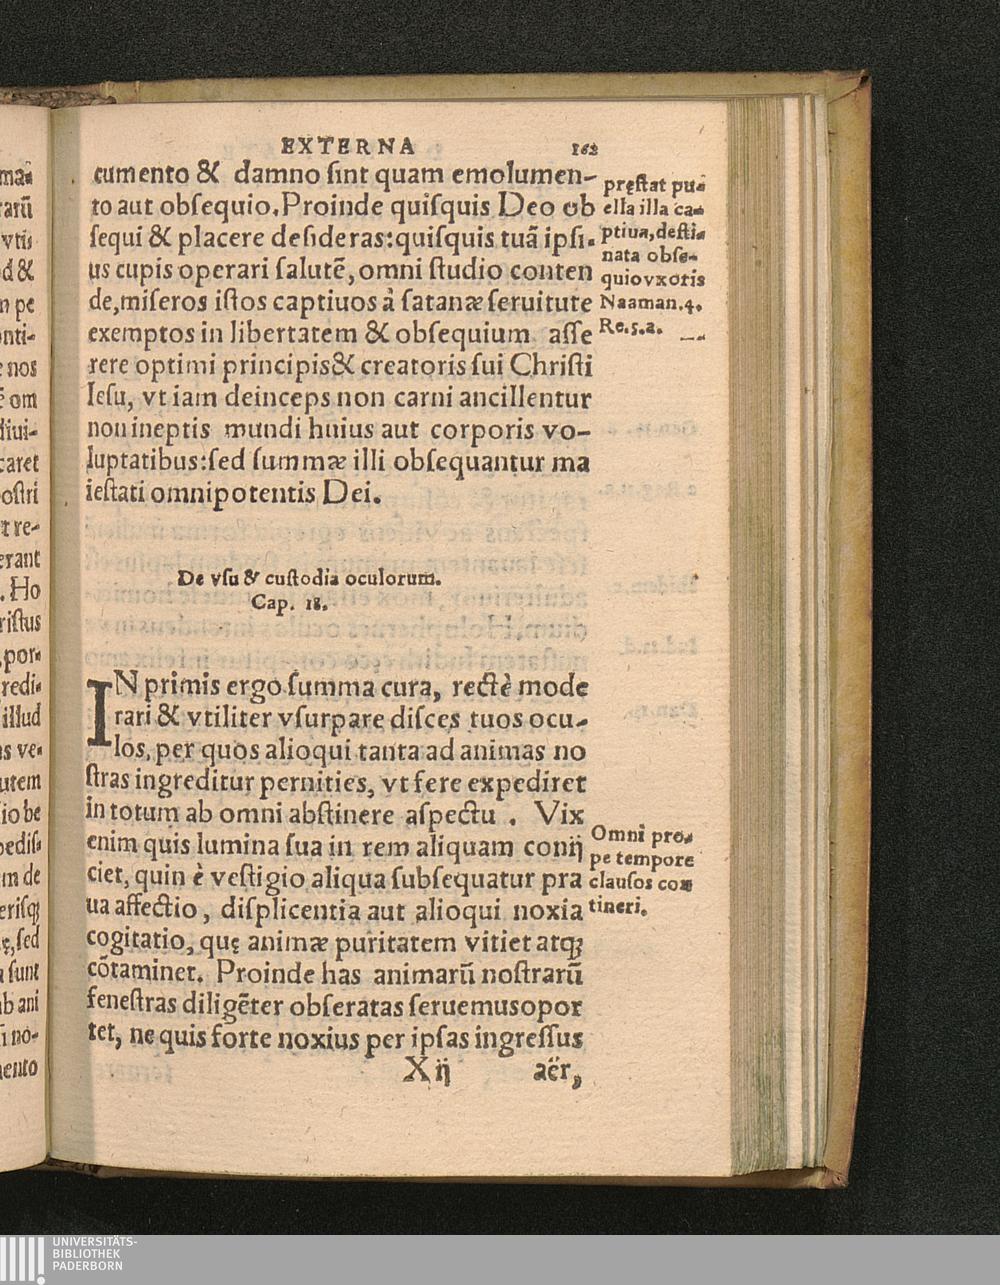 EXTERNA 162
cumento & damno ſint quam emolumen-
to aut obſequio. Proinde quiſquis Deo ob
ſequi & placere deſideras: quiſquis tuā ipſi-
us cupis operari ſalutē, omni ſtudio conten
de, miſeros iſtos captiuos à ſatanæ ſeruitute
exemptos in libertatem & obſequium aſſe
rere optimi principis & creatoris ſui Chriſti
Ieſu, vt iam deinceps non carni ancillentur
non ineptis mundi huius aut corporis vo-
luptatibus: ſed ſummæ illi obſequantur ma
ieſtati omnipotentis Dei.
pręſtat pu-
ella illa ca-
ptiua, deſti-
nata obſe-
quio vxoris
Naaman. 4.
Re. 5. a.
De vſu & cuſtodia oculorum.
Cap. 18.
IN primis ergo ſumma cura, rectè mode
rari & vtiliter vſurpare diſces tuos ocu-
los, per quos alioqui tanta ad animas no
ſtras ingreditur pernities, vt fere expediret
in totum ab omni abſtinere aſpectu . Vix
enim quis lumina ſua in rem aliquam conij
ciet, quin è veſtigio aliqua ſubſequatur pra
ua affectio, diſplicentia aut alioqui noxia
cogitatio, quę animæ puritatem vitiet atq;
cōtaminet. Proinde has animarū noſtrarū
feneſtras diligēter obſeratas ſeruemus opor
tet, ne quis forte noxius per ipſas ingreſſus
Omni pro-
pe tempore
clauſos con
tineri.
X ij aër,
ma-
rarū
vtiſ
d &
n pe
onti-
e nos
ē om
diui-
caret
oſtri
t re-
erant
. Ho
riſtus
por-
redi-
illud
as ve-
utem
io be
pediſ-
m de
eriſq;
ę, ſed
a ſunt
ab ani
ſi no-
mento
UNIVERSITÄTS-
BIBLIOTHEK
PADERBORN